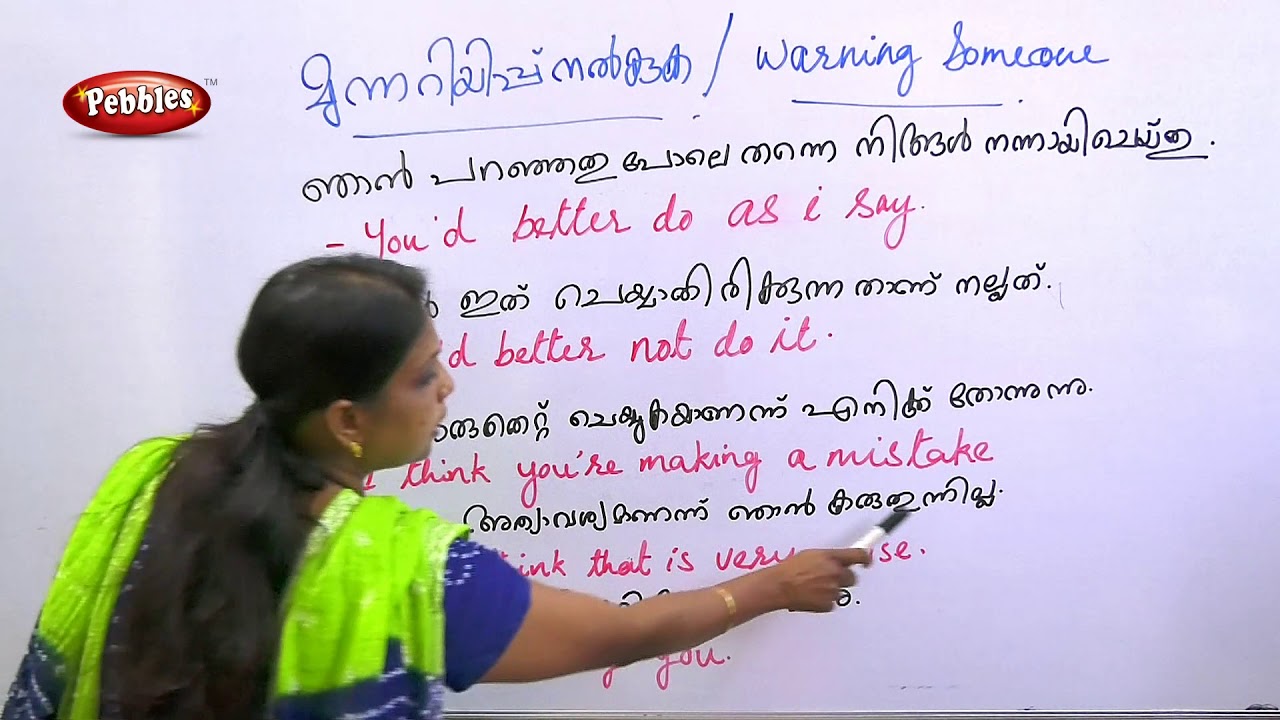 Pebbles™
മുന്നറിയിപ്പ് നൽകുക / Warning Someone
ഞാൻ പറഞ്ഞതു പോലെ തന്നെ നിങ്ങൾ നന്നായി ചെയ്തു.
- You'd better do as i say.
ഇത് ചെയ്യാതിരിക്കുന്നതാണ് നല്ലത്.
better not do it.
ചെയ്യുകയാണന്ന് എനിക്ക് തോന്നുന്നു.
I think you're making a mistake
അത്യാവശ്യമാണന്ന് ഞാൻ കരുതുന്നില്ല.
that is very
you.